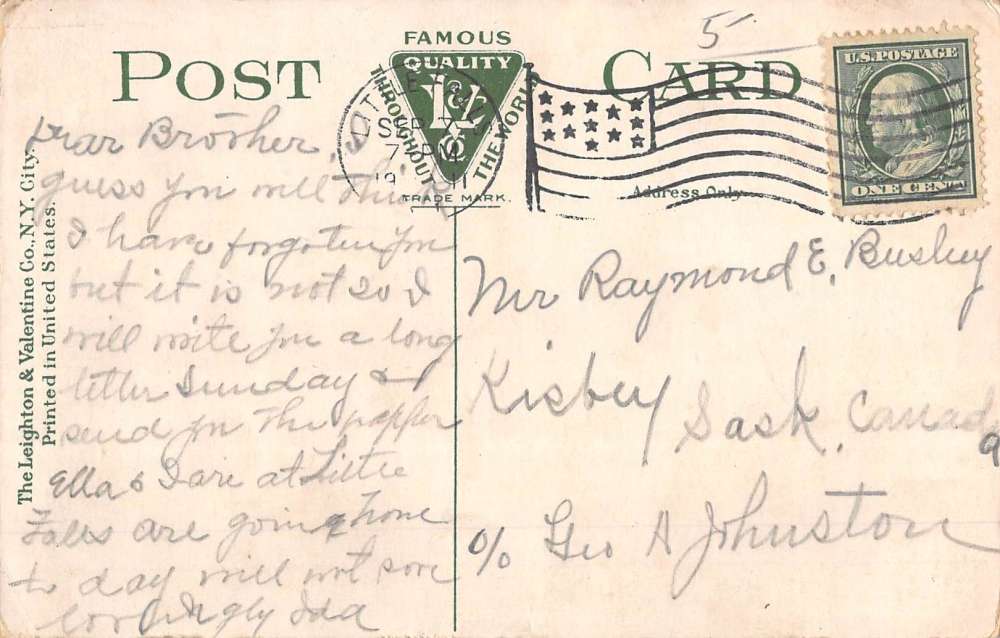 5
FAMOUS
POST CARD
QUALITY
THROUGHOUT
THE WORLD
V & L
TRADE MARK.
SEP
7 PM
19 11
U.S. POSTAGE
ONE CENT
Address Only
The Leighton & Valentine Co., N.Y. City.
Printed in United States.
Dear Brother, I
guess you will think
I have forgotten you
but it is not so I
will write you a long
letter Sunday &
send you the papper
Ella & I are at Little
Falls are going home
to day will write soon
lovingly Ida
Mr Raymond E. Bushey
Kisbey
Sask, Canada
c/o Geo A Johnston